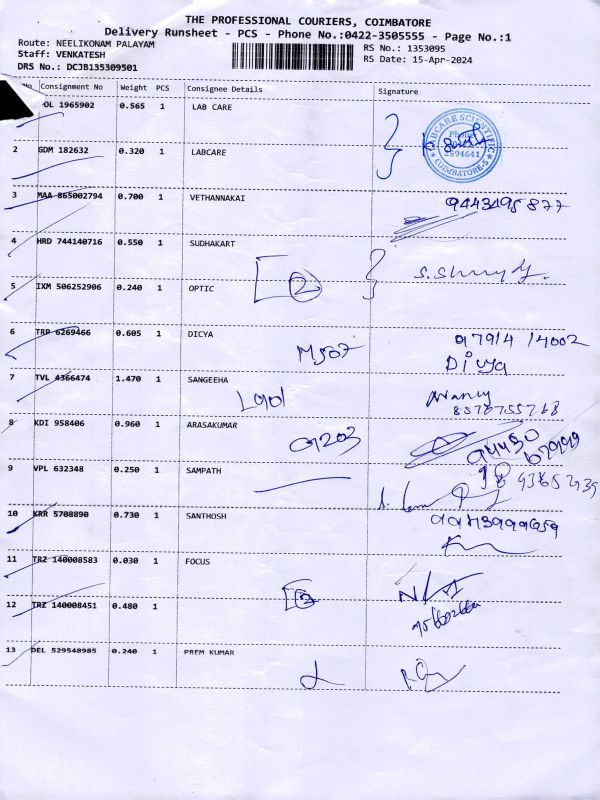 THE PROFESSIONAL COURIERS, COIMBATORE
Delivery Runsheet - PCS - Phone No.:0422-3505555 - Page No.:1
Route: NEELIKONAM PALAYAM
RS No.: 1353095
Staff: VENKATESH
RS Date: 15-Apr-2024
DRS No.: DCJB135309501
No Consignment No Weight PCS Consignee Details Signature
OL 1965902 0.565 1 LAB CARE
2 GDM 182632 0.320 1 LABCARE
LABCARE SCIENTIFIC
Phone
2594641
COIMBATORE-5
3 MAA 865002794 0.700 1 VETHANNAKAI 9443495877
4 HRD 744140716 0.550 1 SUDHAKART
5 IXM 506252906 0.240 1 OPTIC 2
6 TRP 6269466 0.605 1 DICYA M507 97914 14002
Divya
7 TVL 4366474 1.470 1 SANGEEHA L901
8 KDI 958406 0.960 1 ARASAKUMAR A203
9 VPL 632348 0.250 1 SAMPATH
10 KRR 5708890 0.730 1 SANTHOSH
11 TRZ 140008583 0.030 1 FOCUS
12 TRZ 140008451 0.480 1 2
13 DEL 529548985 0.240 1 PREM KUMAR